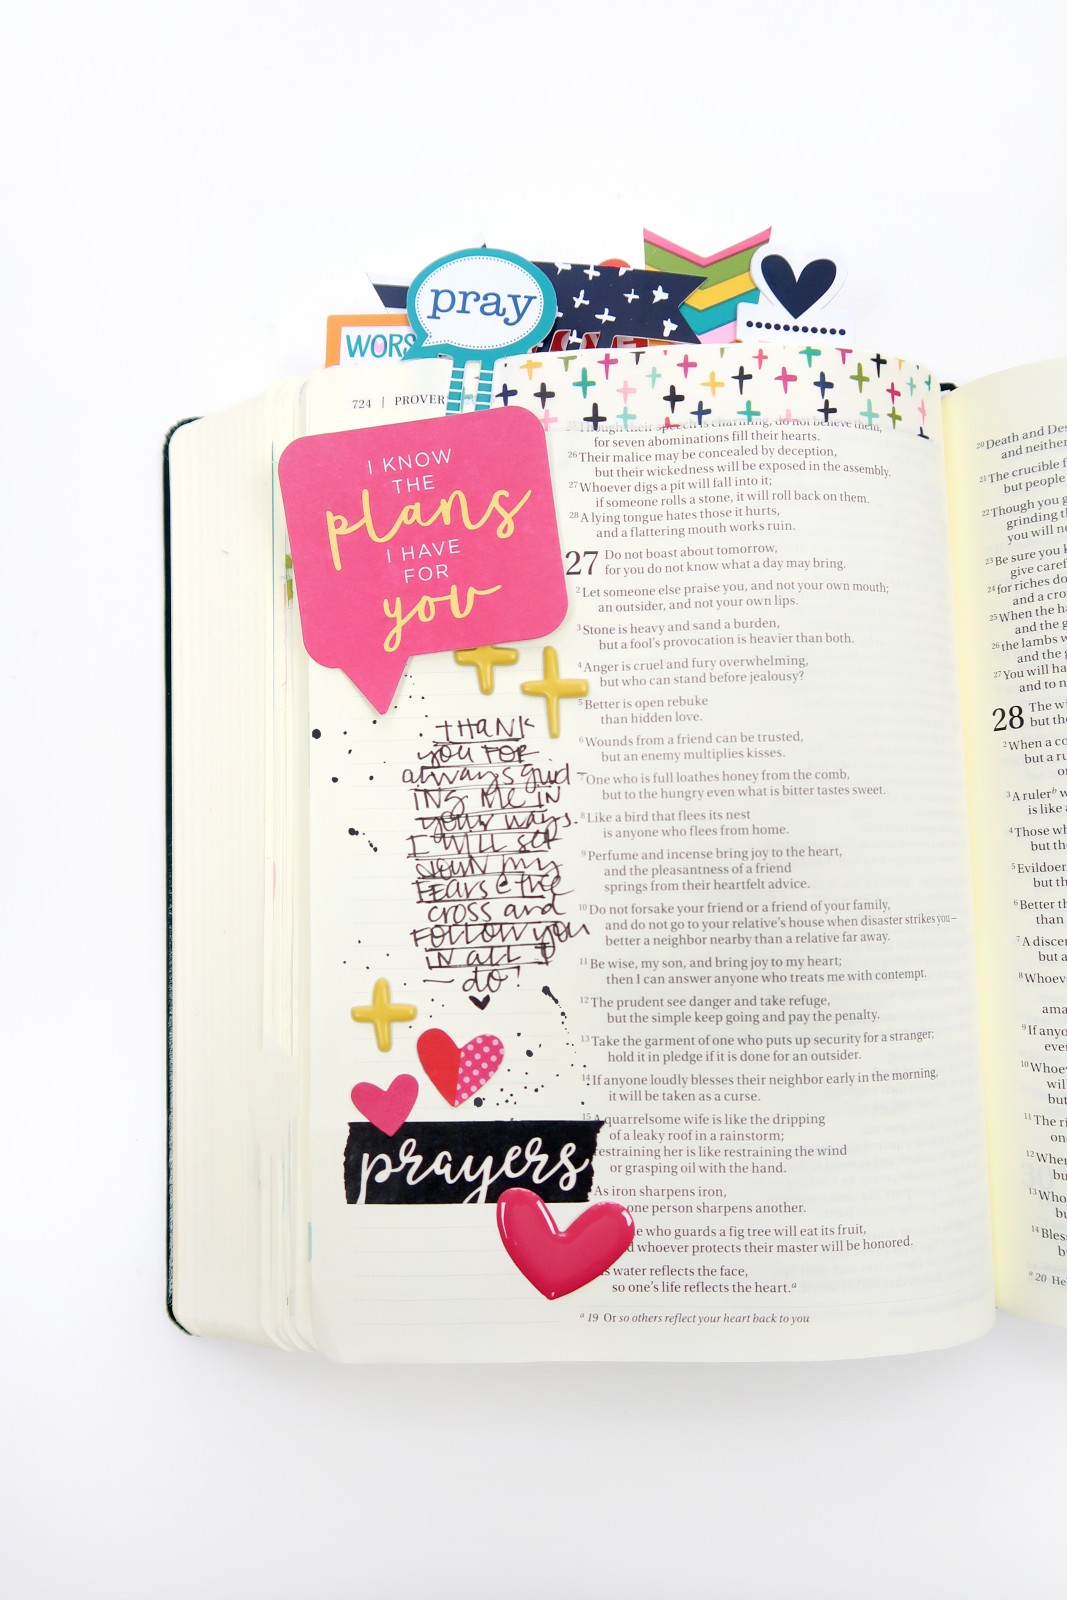 pray
WORS
724 | PROVER
I KNOW
THE
plans
I HAVE
FOR
you
THANK
you FOR
always guid-
ING ME IN
your ways.
I WILL SET
DOWN my
FEARS @ the
cross and
FOLLOW you
IN all I
do!
prayers
25 Though their speech is charming, do not believe them,
for seven abominations fill their hearts.
26 Their malice may be concealed by deception,
but their wickedness will be exposed in the assembly.
27 Whoever digs a pit will fall into it;
if someone rolls a stone, it will roll back on them.
28 A lying tongue hates those it hurts,
and a flattering mouth works ruin.
27 Do not boast about tomorrow,
for you do not know what a day may bring.
2 Let someone else praise you, and not your own mouth;
an outsider, and not your own lips.
3 Stone is heavy and sand a burden,
but a fool's provocation is heavier than both.
4 Anger is cruel and fury overwhelming,
but who can stand before jealousy?
5 Better is open rebuke
than hidden love.
6 Wounds from a friend can be trusted,
but an enemy multiplies kisses.
7 One who is full loathes honey from the comb,
but to the hungry even what is bitter tastes sweet.
8 Like a bird that flees its nest
is anyone who flees from home.
9 Perfume and incense bring joy to the heart,
and the pleasantness of a friend
springs from their heartfelt advice.
10 Do not forsake your friend or a friend of your family,
and do not go to your relative's house when disaster strikes you—
better a neighbor nearby than a relative far away.
11 Be wise, my son, and bring joy to my heart;
then I can answer anyone who treats me with contempt.
12 The prudent see danger and take refuge,
but the simple keep going and pay the penalty.
13 Take the garment of one who puts up security for a stranger;
hold it in pledge if it is done for an outsider.
14 If anyone loudly blesses their neighbor early in the morning,
it will be taken as a curse.
15 A quarrelsome wife is like the dripping
of a leaky roof in a rainstorm;
restraining her is like restraining the wind
or grasping oil with the hand.
As iron sharpens iron,
one person sharpens another.
who guards a fig tree will eat its fruit,
whoever protects their master will be honored.
water reflects the face,
so one's life reflects the heart.a
a 19 Or so others reflect your heart back to you
20 Death and Des
and neither
21 The crucible f
but people
22 Though you g
grinding th
you will no
23 Be sure you k
give caref
24 for riches do
and a cro
25 When the ha
and the g
26 the lambs w
and the g
27 You will ha
and to n
28 The wi
but the
2 When a co
but a ru
3 A ruler b w
is like a
4 Those wh
but the
5 Evildoer
but th
6 Better th
than
7 A discer
but a
8 Whoev
ama
9 If anyo
ever
10 Whoev
will
but
11 The ri
one
12 When
bu
13 Who
bu
14 Bless
b
a 20 He